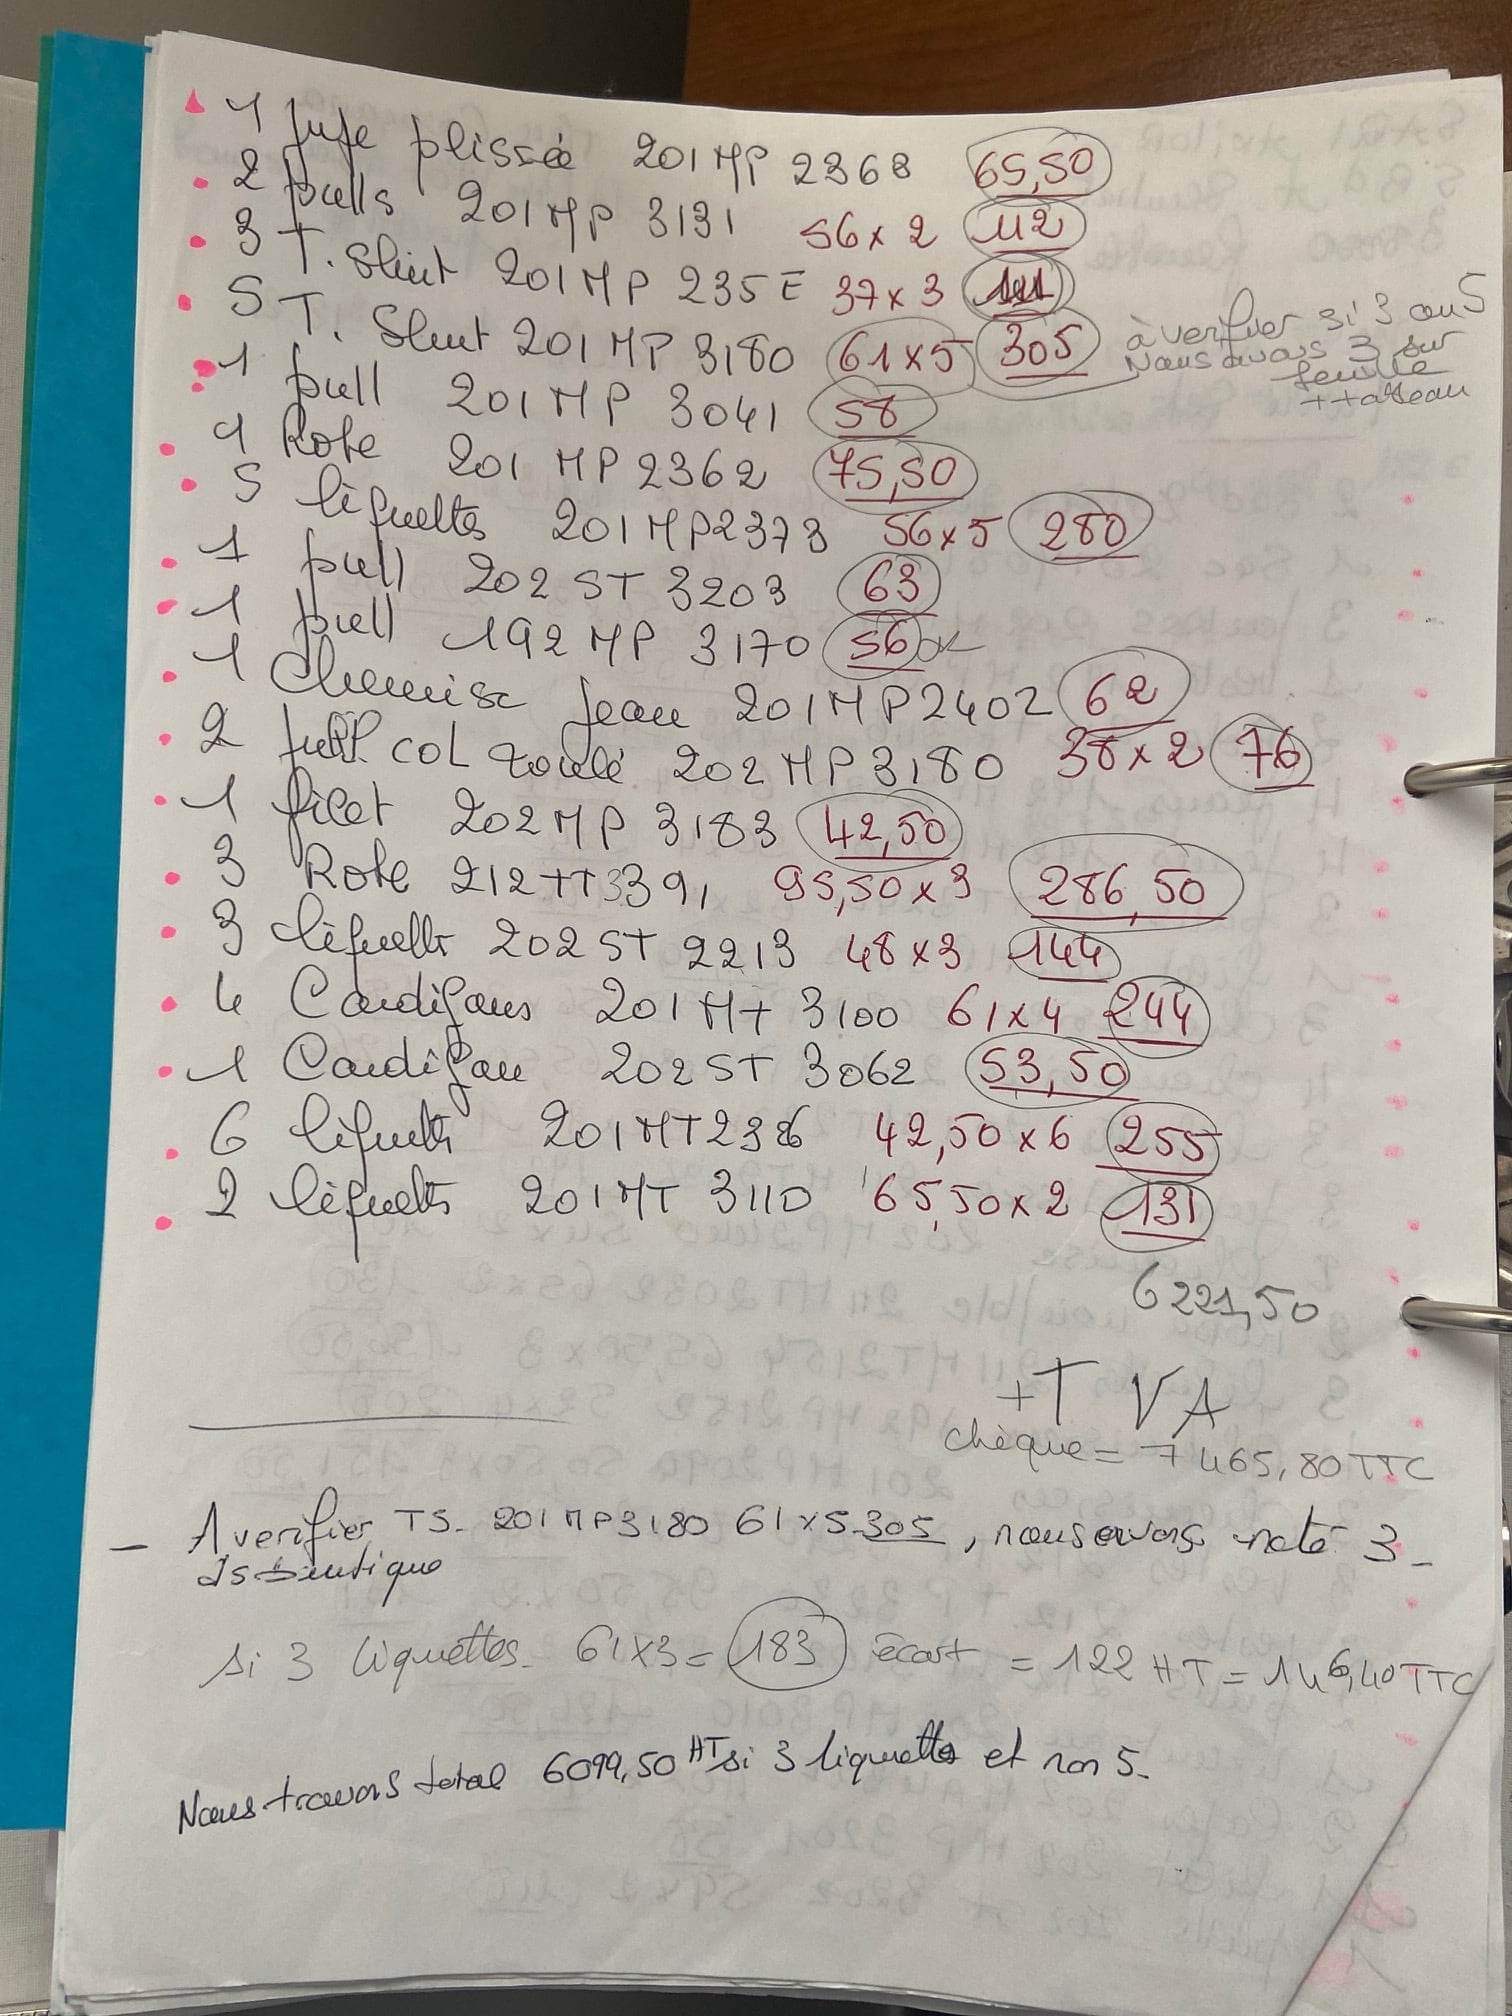 1 Jupe plissée 201 MP 2368 65,50
2 pulls 201 MP 3131 56 x 2 112
3 T. Shirt 201 MP 235E 37 x 3 111
5 T. Shirt 201 MP 3180 61 x 5 305
à verifier si 3 ou 5
Nous avons 3 sur
feuille
1 pull 201 MP 3041 58
1 Robe 201 MP 2362 75,50
5 liquettes 201 MP 2373 56 x 5 280
1 pull 202 ST 3203 63
1 pull 192 MP 3170 56 ok
1 Chemise jean 201 MP 2402 62
2 pull col roulé 202 MP 3180 38 x 2 76
1 gilet 202 MP 3183 42,50
3 Robe 212 TT 3391 95,50 x 3 286,50
3 liquette 202 ST 2213 48 x 3 144
4 Cardigans 201 MT 3100 61 x 4 244
1 Cardigan 202 ST 3062 53,50
6 liquettes 201 MT 2386 42,50 x 6 255
2 liquettes 201 MT 3110 65,50 x 2 131
6221,50
+ TVA
chèque = 7465,80 TTC
- A verifier TS. 201 MP 3180 61 x 5 305, nous avons noté 3 -
si 3 liquettes. 61 x 3 = 183 écart = 122 HT = 146,40 TTC
Nous trouvons total 6099,50 HT si 3 liquettes et non 5.